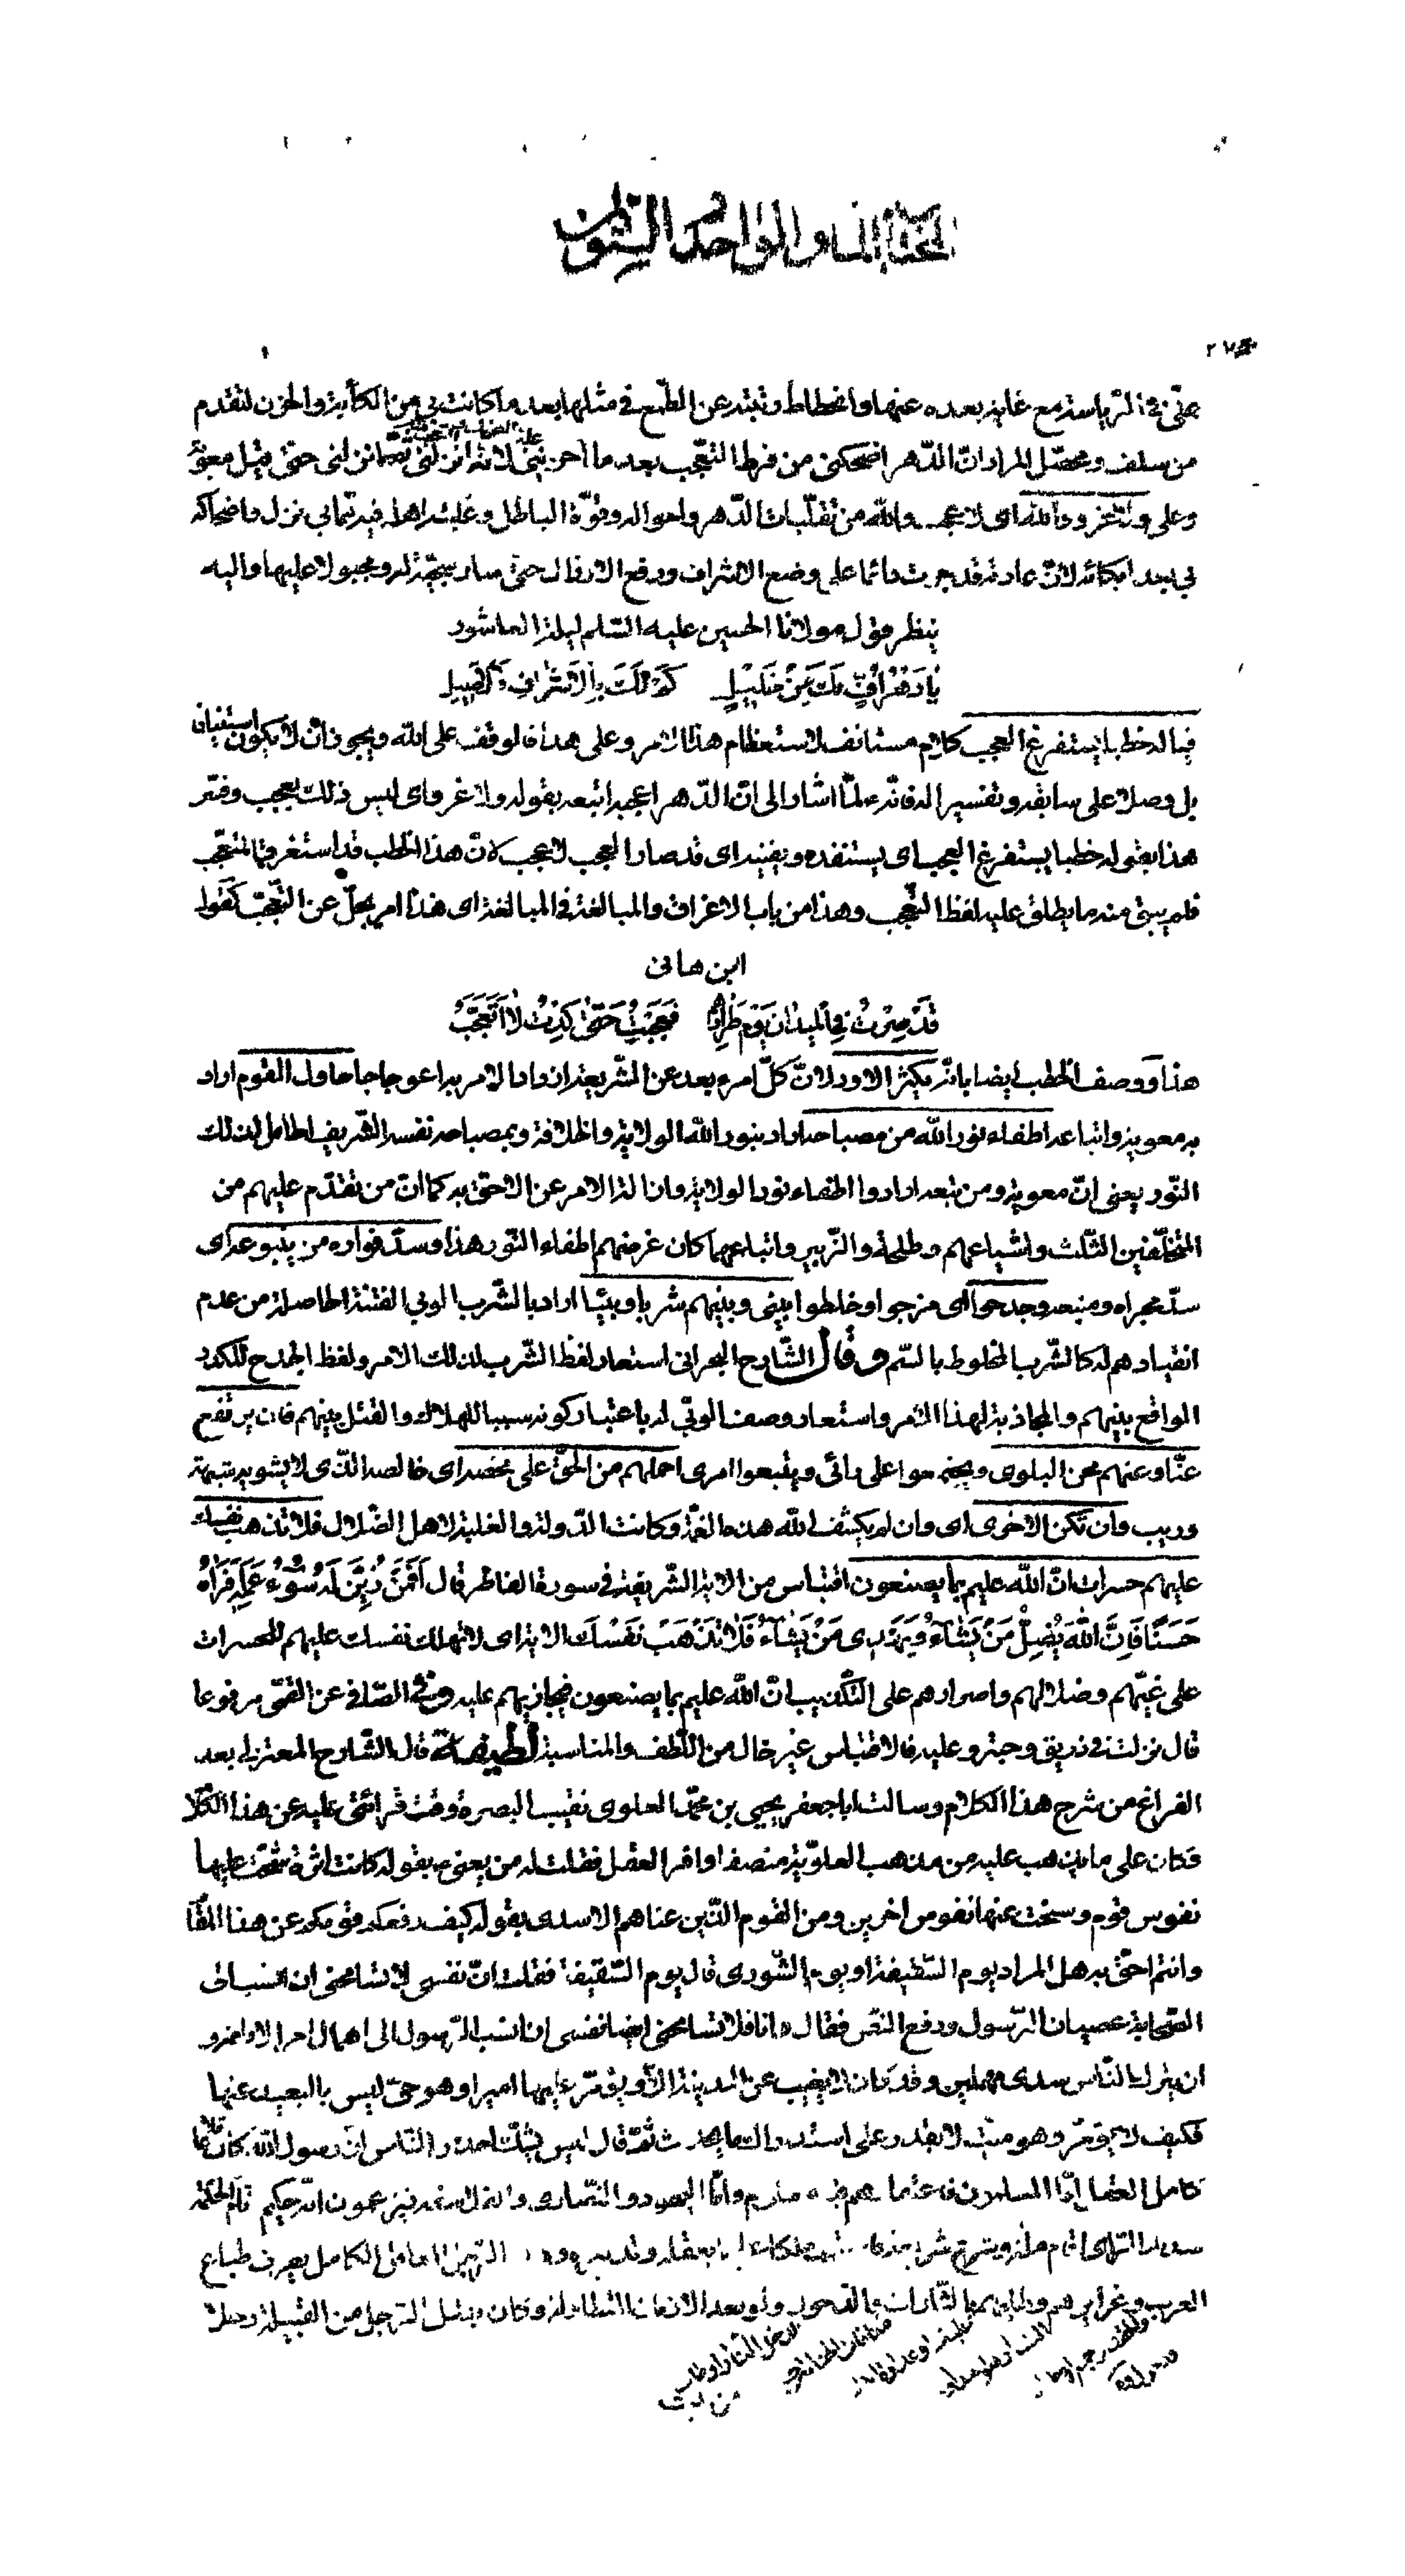 المختار المأة والواحد والستون
٢٧
عنّى في الرياسة مع غاية بعده عنها وانحطاط رتبته عن الطمع في مثلها بعد ما كانت بي من الكأبة والحزن لتقدم
من سلف ومحصّل المراد انّ الدّهر اضحكنى من فرط التعجّب بعد ما احزننى لانّه انزلنى ثمّ انزلنى حتى قيل معوية
وعلى ولا غرو والله اى لا عجب والله من تقلّبات الدّهر واحواله وقوّة الباطل وغلبة اهله فيه تمابى نزل واضحاكه
لى بعد ابكائه لانّ عادته قد جرت دائما على وضع الاشراف ورفع الارذال حتى صار سجيّة له ومجبولا عليها واليه
ينظر قول مولانا الحسين عليه السّلم ليلة العاشور
يا دهر افّ لك من خليل كم لك بالاشراق والاصيل
فياله خطبا يستفرغ العجب كلام مستانف لاستعظام هذا الامر وعلى هذا فالوقف على الله ويجوز ان لا يكون استينافا
بل وصلا على سابقه وتفسيرا له فانّه لمّا اشار الى انّ الدّهر اعجبه اتبعه بقوله ولا غرو اى ليس ذلك بعجب وفسّر
هذا بقوله خطبا يستفرغ العجب اى يستنفده ويفنيه اى قد صار العجب لا عجب لانّ هذا الخطب قد استغرق التعجّب
فلم يبق منه ما يطلق عليه لفظ التعجّب وهذا من باب الاغراق والمبالغة في المبالغة اى هذا امر يجلّ عن التعجّب كقول
ابن هانى
قد سرت في الميدان يوم طرادهم فعجبت حتى كدت لا اتعجّب
هذا ووصف الخطب ايضا بانّه يكثر الاود لانّ كلّ امرء بعد عن الشّريعة ازداد الامر به اعوجاجا حاول القوم اراد
به معوية واتباعه اطفاء نور الله من مصباحه اراد بنور الله الولاية والخلافة وبمصباحه نفسه الشّريف الحامل لذلك
النّور يعنى انّ معوية ومن تبعه ارادوا اطفاء نور الولاية وازالة الامر عن الاحقّ به كما انّ من تقدّم عليهم من
المتخلّفين الثّلث واشياعهم وطلحة والزّبير واتباعهما كان غرضهم اطفاء النّور هذا وسدّ فواره من ينبوعه اى
سدّ مجراه ومنبعه وجدحوا اى مزجوا وخلطوا بينى وبينهم شربا وبيئا اراد بالشّرب الوبى الفتنة الحاصلة من عدم
انقيادهم له كالشّرب المخلوط بالسّم وقال الشّارح البحرانى استعار لفظ الشّرب لذلك الامر ولفظ الجدح للكدر
الواقع بينهم والمجاذبة لهذا الامر واستعار وصف الوبى له باعتبار كونه سببا للهلاك والقتل بينهم فان يرتفع
عنّا وعنهم محن البلوى ويجتمعوا على رائى ويتبعوا امرى احملهم من الحقّ على محضه اى خالصه الّذى لا يشوبه شبهة
وريب وان تكن الاخرى اى وان لم يكشف الله هذه الغمّة وكانت الدّولة والغلبة لاهل الضّلال فلا تذهب نفسك
عليهم حسرات انّ الله عليم بما يصنعون اقتباس من الاية الشّريفة في سورة الفاطر قال افمن زيّن له سوء عمله فراه
حسنا فانّ الله يضلّ من يشاء ويهدى من يشاء فلا تذهب نفسك الاية اى لا تهلك نفسك عليهم للحسرات
على غيّهم وضلالهم واصرارهم على التّكذيب انّ الله عليم بما يصنعون فيجازيهم عليه وفي الصّافى عن القمّى مرفوعا
قال نزلت في زريق وحبتر وعليه فالاقتباس غير خال من اللّطف والمناسبة لطيفة قال الشّارح المعتزلى بعد
الفراغ من شرح هذا الكلام وسالت ابا جعفر يحيى بن محمّد العلوى نقيب البصرة وقت قرائتى عليه عن هذا الكلام
فكان على ما يذهب عليه من مذهب العلويّة منصفا وافر العقل فقلت له من يعنى بقوله كانت اثرة شحّت عليها
نفوس قوم وسخت عنها نفوس اخرين ومن القوم الّذين عناهم الاسدى بقوله كيف دفعكم قومكم عن هذا المقام
وانتم احقّ به هل المراد يوم السّقيفة او يوم الشّورى قال يوم السّقيفة فقلت انّ نفسى لا تسامحنى ان انسب الى
الصّحابة عصيان الرّسول ودفع النّص فقال وانا فلا تسامحنى ايضا نفسى ان انسب الرّسول الى اهمال امر الامامة و
ان يترك النّاس سدى مهملين وقد كان لا يغيب عن المدينة الّا ويؤمّر عليها اميرا وهو حىّ ليس بالبعيد عنها
فكيف لا يؤمّر وهو ميّت لا يقدر على استدراك ما يحدث ثمّ قال ليس يشكّ احد من النّاس انّ رسول الله كان عاقلا
كامل العقل امّا المسلمون فاعتقادهم فيه معلوم وامّا اليهود والنّصارى والفلاسفة فيزعمون انّه حكيم تامّ الحكمة
سديد الرّاى اقام ملّة وشرع شريعة ملكا بعقله وتدبيره وهذا الرّجل العاقل الكامل يعرف طباع
العرب وغرايزهم وطلبهم بالثّارات والذّحول ولو بعد الازمان المتطاولة وكان يقتل الرّجل من القبيلة رجلا